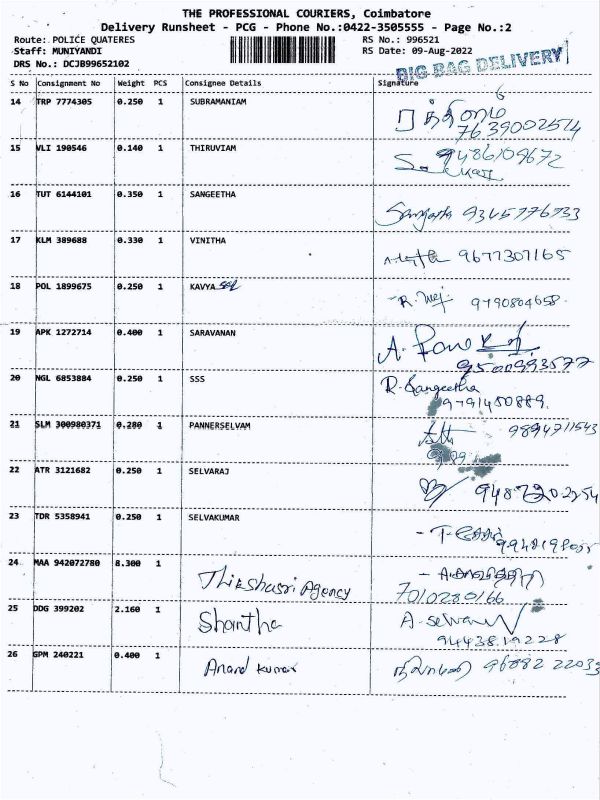 THE PROFESSIONAL COURIERS, Coimbatore
Delivery Runsheet - PCG - Phone No.:0422-3505555 - Page No.:2
Route: POLICE QUATERES RS No.: 996521
Staff: MUNIYANDI RS Date: 09-Aug-2022
DRS No.: DCJB99652102
BIG BAG DELIVERY
S No Consignment No Weight PCS Consignee Details Signature
14 TRP 7774305 0.250 1 SUBRAMANIAM
7639002514
15 VLI 190546 0.140 1 THIRUVIAM 9486109672
16 TUT 6144101 0.350 1 SANGEETHA
Sangeetha 9345776733
17 KLM 389688 0.330 1 VINITHA
9677307165
18 POL 1899675 0.250 1 KAVYA
9790804658
19 APK 1272714 0.400 1 SARAVANAN
9500993577
20 NGL 6853884 0.250 1 SSS R. Sangeetha
9791450889
21 SLM 300980371 0.280 1 PANNERSELVAM 9894711543
22 ATR 3121682 0.250 1 SELVARAJ
9487202254
23 TDR 5358941 0.250 1 SELVAKUMAR
24 MAA 942072780 8.300 1
Thikshasri Agency 7010280166
25 DDG 399202 2.160 1 Shantha A-selvaraj
94438.19228
26 GPM 240221 0.400 1 Anand kumar 96882 22033